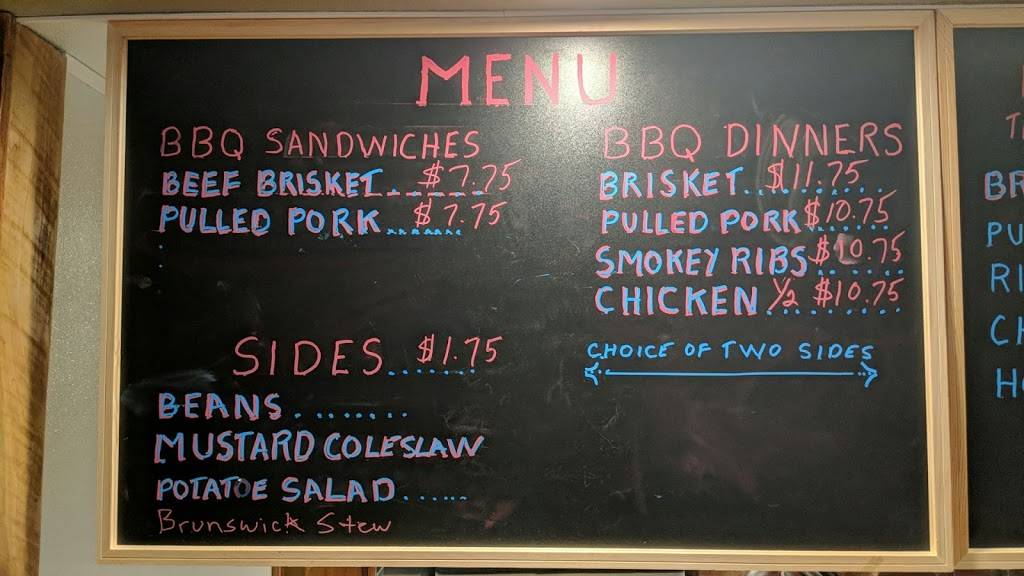 MENU
BBQ SANDWICHES
BEEF BRISKET....... $7.75
PULLED PORK....... $7.75
SIDES....... $1.75
BEANS........
MUSTARD COLESLAW
POTATOE SALAD......
Brunswick Stew
BBQ DINNERS
BRISKET......... $11.75
PULLED PORK...... $10.75
SMOKEY RIBS...... $10.75
CHICKEN 1/2 ........ $10.75
CHOICE OF TWO SIDES